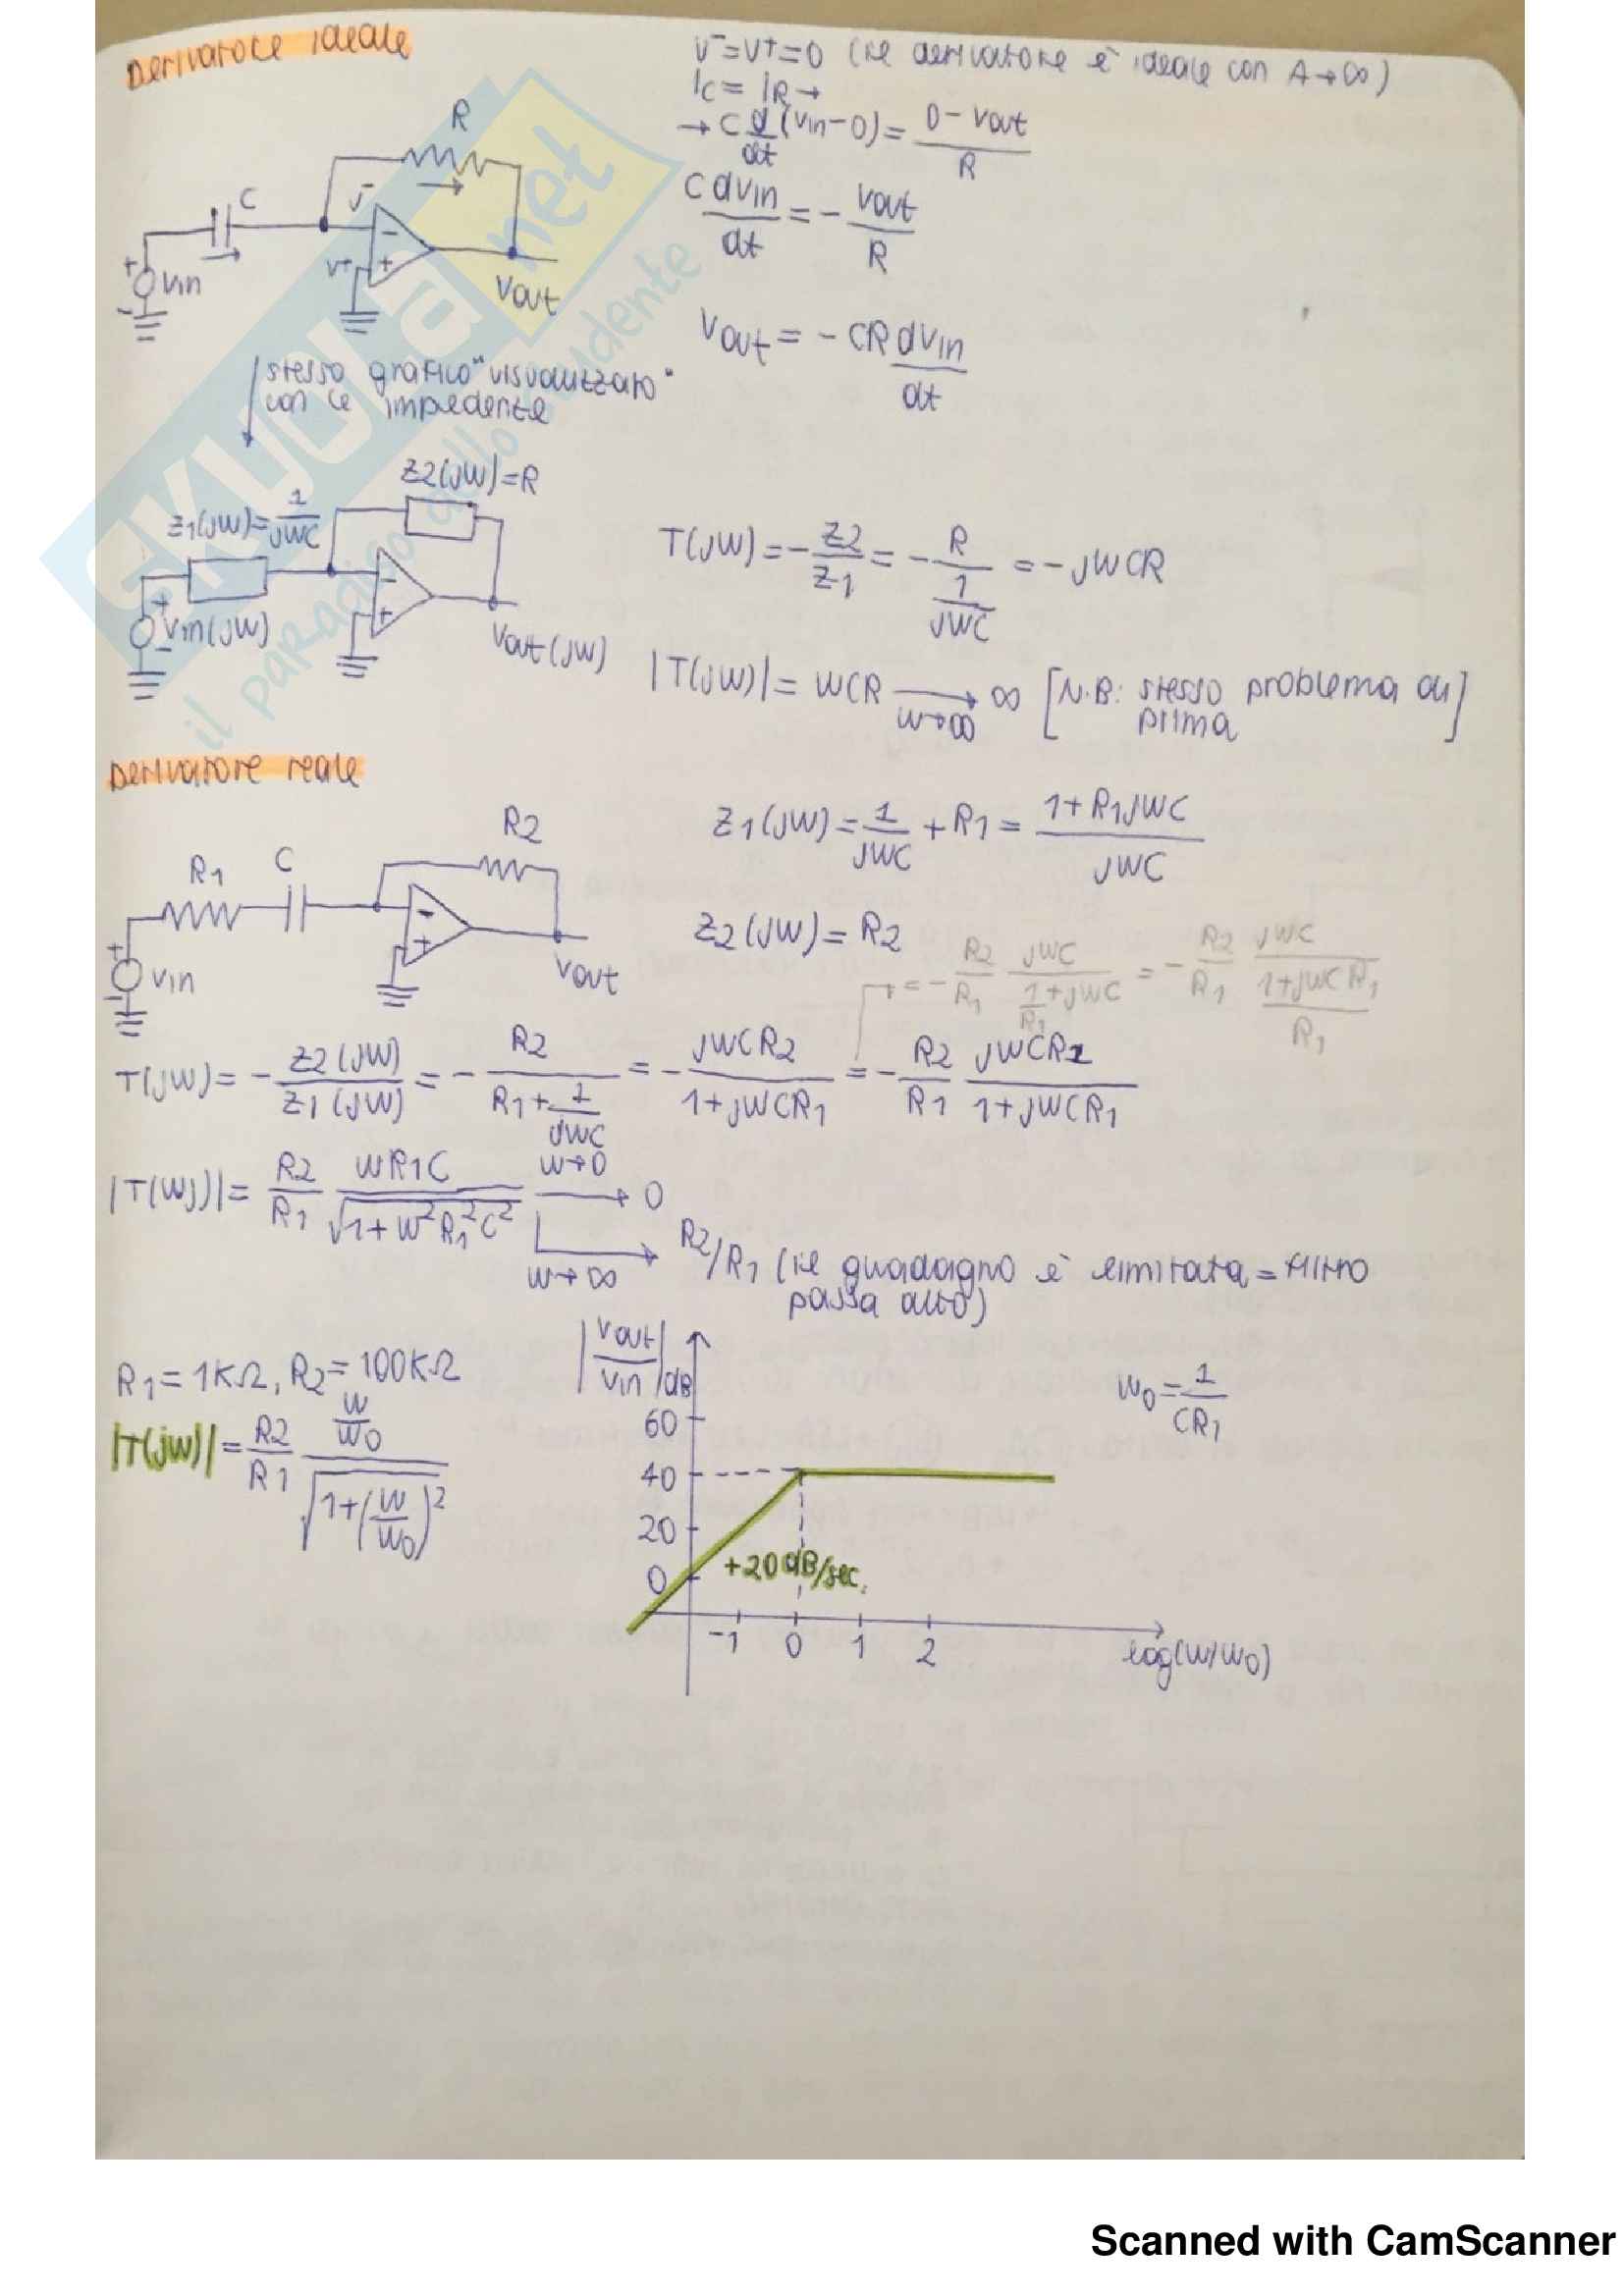 Derivatore ideale
R
C
V-
V+
-
+
+
-
Vin
Vout
V-=V+=0 (se derivatore è ideale con A→∞)
IC = IR →
→ C d/dt (Vin-0) = (0-Vout)/R
C dVin/dt = - Vout/R
Vout = - CR dVin/dt
stesso grafico "visualizzato"
con le impedente
Z2(jW)=R
Z1(jW)=1/jWC
-
+
+
-
Vin(jW)
Vout(jW)
T(jW) = - Z2/Z1 = - R/(1/jWC) = - jWCR
|T(jW)| = WCR → ∞ [N.B: stesso problema di
W→∞
prima]
Derivatore reale
R2
R1
C
-
+
+
-
Vin
Vout
Z1(jW) = 1/jWC + R1 = (1+R1jWC)/jWC
Z2(jW) = R2
→ = - R2/R1 jWC/(1/R1+jWC) = - R2/R1 jWC/((1+jWCR1)/R1)
T(jW) = - Z2(jW)/Z1(jW) = - R2/(R1+1/jWC) = - jWCR2/(1+jWCR1) = - R2/R1 jWCR1/(1+jWCR1)
|T(Wj)| = R2/R1 WR1C/√(1+W²R1²C²) W→0 → 0
W→∞ → R2/R1 (il guadagno è limitata = filtro
passa alto)
R1=1KΩ, R2=100KΩ
|T(jW)| = R2/R1 (W/W0)/√(1+(W/W0)²)
|Vout/Vin|dB
60
40
20
0
+20dB/sec.
-1 0 1 2
log(W/W0)
W0=1/CR1
skuola.net
il paradiso dello studente
Scanned with CamScanner